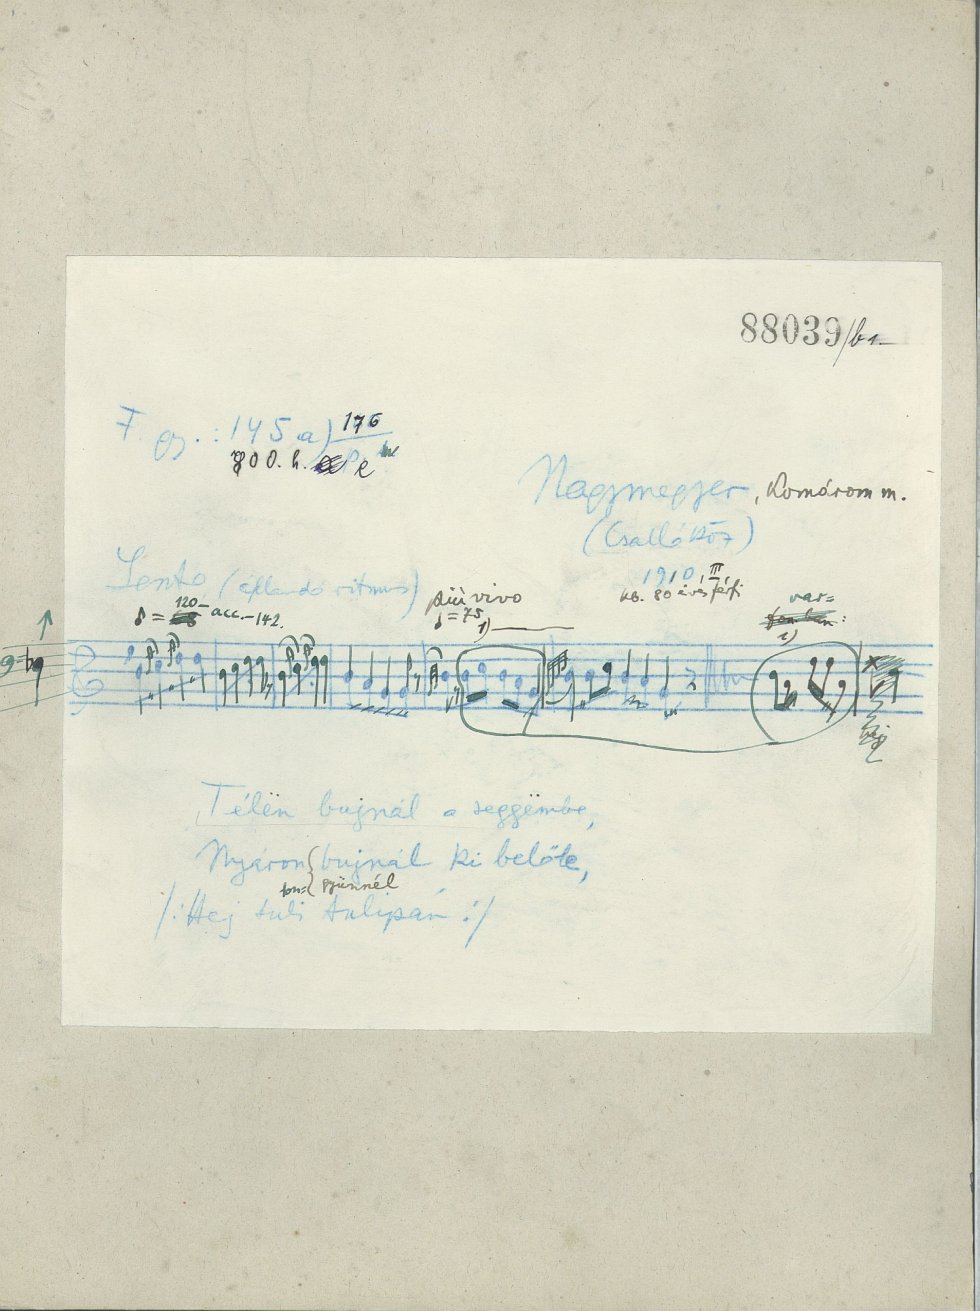 88039/b1
F. gy.: 145 a) 176
800. h. e
Nagymegyer, Komárom m.
(Csallóköz)
1910, III,
kb. 80 éves férfi
Lento (állandó ritmus)
♪ = 120– acc.–142.
più vivo
♩ = 75
1)
var:
1)
Télën bujnál a seggëmbe,
Nyáron { bujnál ki belőle,
gyünnél
/: Hej tuli tulipán :/